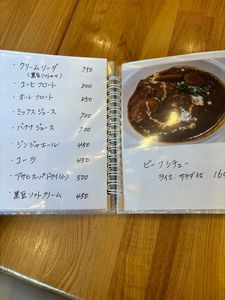 ・クリームソーダ 750
(黒豆ソフトのせ)
・コーヒフロート 800
・オーレフロート 850
・ミックスジュース 700
・バナナジュース 700
・ジンジャエール 450
・コーラ 450
・アサヒスーパードライ(小) 500
・黒豆ソフトクリーム 450
ビーフシチュー
ライス、サラダ付